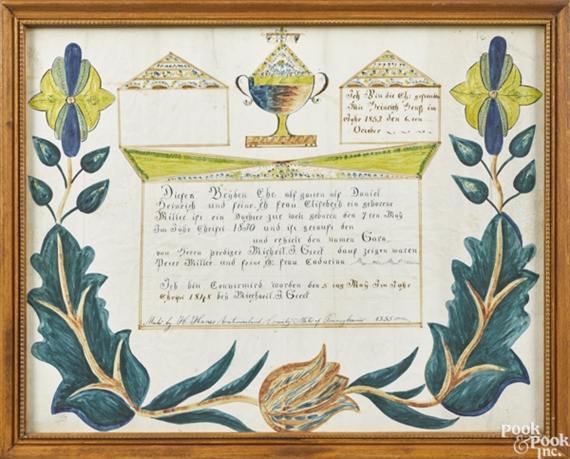 Ich Bin die Ehe gefunden
Mit Heinrich Hauß im
Jahr 1853 den 6 ten
October
Diesen Beyden Ehe alß gauen alß Daniel
Heinrich und seine Eh frau Elisebeth ein geborene
Miller ist ein Dochter zur welt geboren den 7 ten May
Im Jahr Christi 1830 und ist getauft den
und erhielt den namen Sara
von Herrn prediger Micheil. J. Gieck dauf zeigen waren
Peter Miller und seine Eh frau Cadarina
Ich bin Connermird worden den 5 ing May Im Jahr
Christi 1848 bey Michaeil. J Gieck
Made by H Hauss County State of Pennsylvania 1855
Pook
& Pook
Inc.